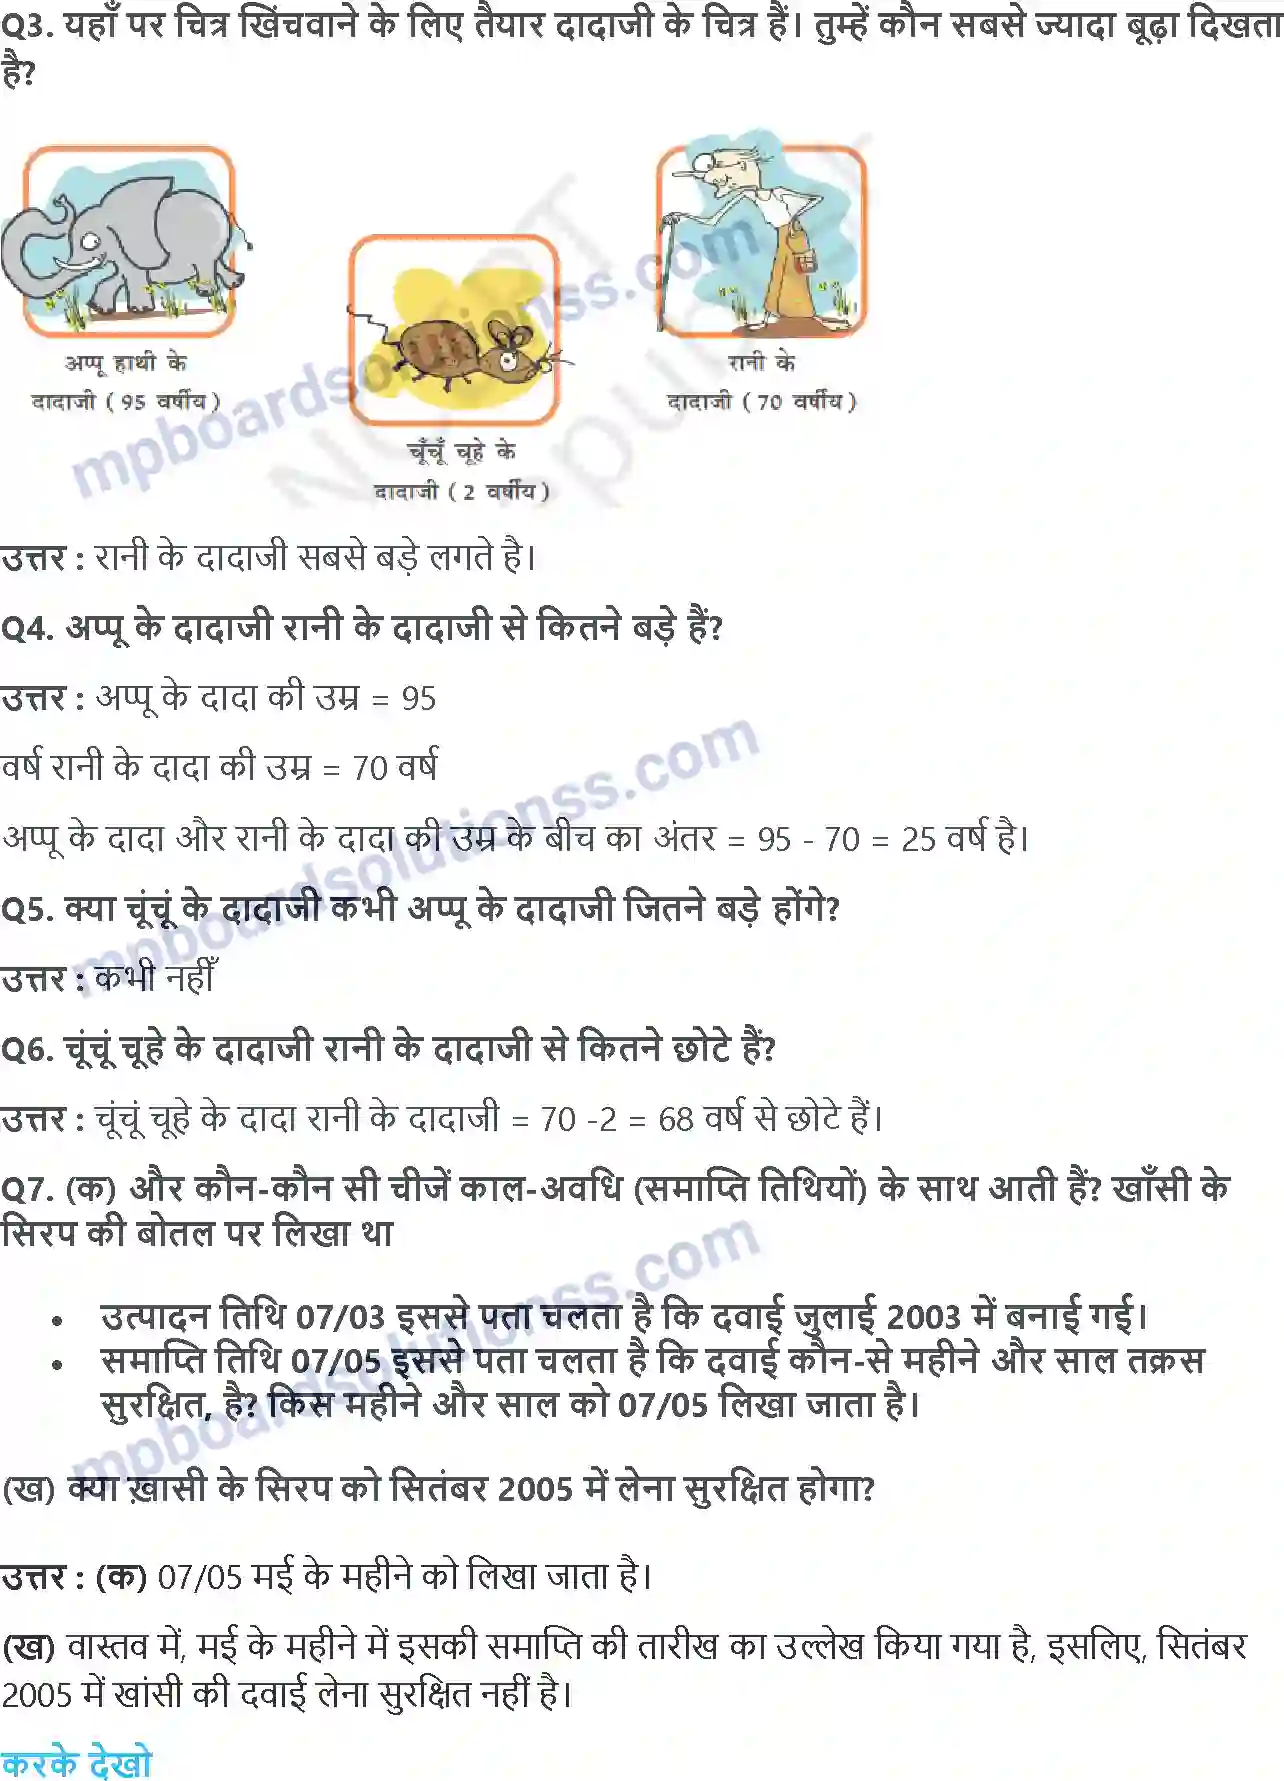 Q3. यहाँ पर चित्र खिंचवाने के लिए तैयार दादाजी के चित्र हैं। तुम्हें कौन सबसे ज्यादा बूढ़ा दिखता
है?
अप्पू हाथी के
दादाजी ( 95 वर्षीय )
चूँचूँ चूहे के
दादाजी ( 2 वर्षीय )
रानी के
दादाजी ( 70 वर्षीय )
mpboardsolutionss.com
उत्तर : रानी के दादाजी सबसे बड़े लगते है।
Q4. अप्पू के दादाजी रानी के दादाजी से कितने बड़े हैं?
उत्तर : अप्पू के दादा की उम्र = 95
वर्ष रानी के दादा की उम्र = 70 वर्ष
अप्पू के दादा और रानी के दादा की उम्र के बीच का अंतर = 95 - 70 = 25 वर्ष है।
mpboardsolutionss.com
Q5. क्या चूंचूं के दादाजी कभी अप्पू के दादाजी जितने बड़े होंगे?
उत्तर : कभी नहीँ
Q6. चूंचूं चूहे के दादाजी रानी के दादाजी से कितने छोटे हैं?
उत्तर : चूंचूं चूहे के दादा रानी के दादाजी = 70 -2 = 68 वर्ष से छोटे हैं।
Q7. (क) और कौन-कौन सी चीजें काल-अवधि (समाप्ति तिथियों) के साथ आती हैं? खाँसी के
सिरप की बोतल पर लिखा था
• उत्पादन तिथि 07/03 इससे पता चलता है कि दवाई जुलाई 2003 में बनाई गई।
• समाप्ति तिथि 07/05 इससे पता चलता है कि दवाई कौन-से महीने और साल तक्रस
सुरक्षित, है? किस महीने और साल को 07/05 लिखा जाता है।
mpboardsolutionss.com
(ख) क्या ख़ासी के सिरप को सितंबर 2005 में लेना सुरक्षित होगा?
उत्तर : (क) 07/05 मई के महीने को लिखा जाता है।
(ख) वास्तव में, मई के महीने में इसकी समाप्ति की तारीख का उल्लेख किया गया है, इसलिए, सितंबर
2005 में खांसी की दवाई लेना सुरक्षित नहीं है।
करके देखो